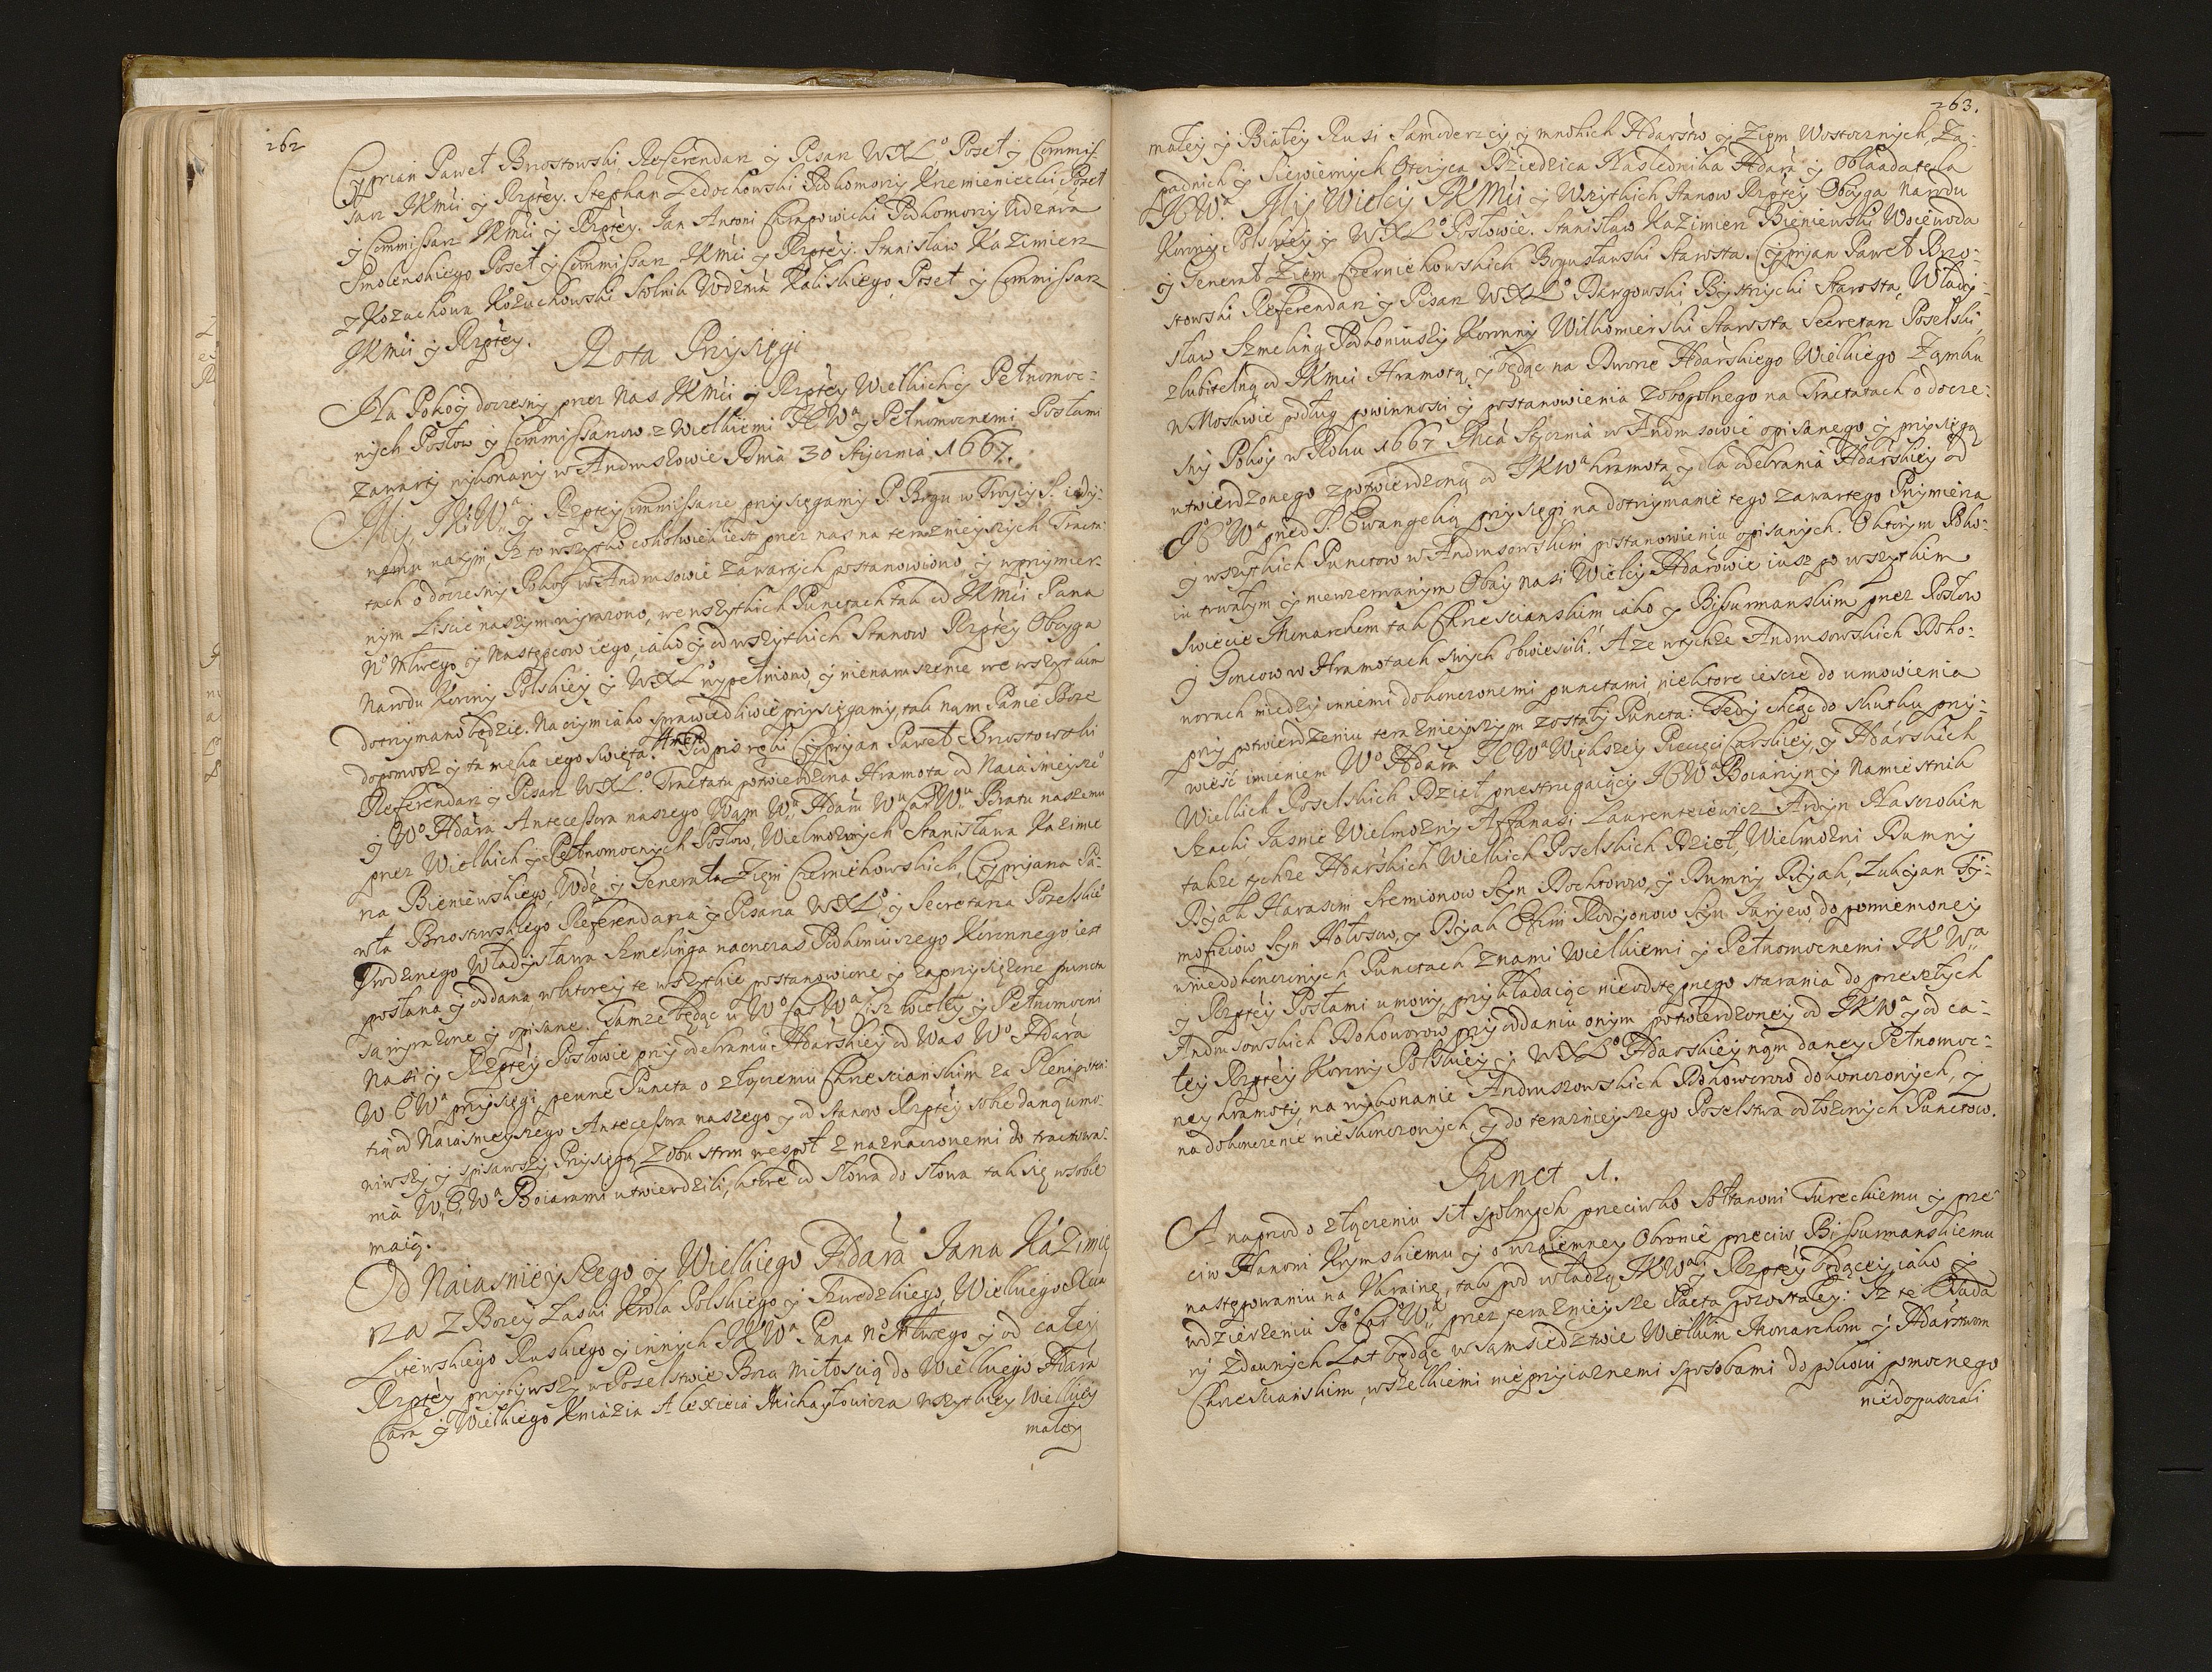 262
Cyprian Paweł Brzostowski, Referendarz y Pisarz WXLo, Poseł y Commis-
sarz JKMci y Rzptey. Stephan Ledochowski Podkomorzy Krzemieniecki Poseł
y Commissarz JKMci y Rzptey. Jan Antoni Chrapowicki Podkomorzy Wdztwa
Smolenskiego Poseł y Commissarz JKMci y Rzptey. Stanisław Kazimierz
z Kozuchowa Kożuchowski Stolnik Wdztwa Kaliskiego, Poseł y Commissarz
JKMci y Rzptey.
Rota Przysięgi
Na Pokoy doczesny przez Nas JKMci y Rzptey Wielkich y Pełnomoc-
nych Posłow y Commissarzow z Wielkiemi JCWa y Pełnomocnemi Posłami
zawarty wykonany w Andruszowie Dnia 30 Stycznia 1667.
My JKWa y Rzptey Commissarze przysięgamy P. Bogu w Troycy S. iedy-
nemu naszym, Iż to wszytko cokolwiek iest przez nas na teraznieyszych Tracta-
tach o doczesny Pokoy w Andrusowie zawartych postanowiono, y w przymier-
nym Liscie naszym wyrazono, we wszytkich Punctach tak od JKMci Pana
No Młwego y Następcow iego, iako y od wszytkich Stanow Rzptey Oboyga
Narodu Korony Polskiey y WXLo wypełniono, y nienaruszenie we wszytkim
dotrzymano będzie. Na czym iako sprawiedliwie przysięgamy, tak nam Panie Boze
dopomosz y ta męka iego swięta. Amen Podpis ręki Cypryan Paweł Brzostowski
Referendarz y Pisarz WXLo. Tractatu potwierdzona Hramota od Naiasnieyszo
y Wo Hdara Antecessora naszego Wam Wu Hdaru Wu Car Wu Bratu naszemu
przez Wielkich y Pełnomocnych Posłow, Wielmożnych Stanisława Kazimie
rza Bieniewskiego, Wdę y Generała Ziem Czernichowskich, Cypryana Pa-
wła Brzostowskiego Referendarza y Pisarza WXLo, y Secretarza Poselskieo
Urodzonego Władysława Szmelinga naonczas Podkoniuszego Koronnego iest
posłana y oddana, w ktorey te wszytkie postanowione y zaprzysiężone puncta
są wyrażone y opisane. Tamze będąc u Wo Car Wa ciż wielcy y Pełnomocni
Nasi y Rzptey Posłowie przy odebraniu Hdarskiey od Was Wo Hdara
W C Wa przysięgi pewne Puncta o złączeniu Chrzescianskim za Plenipoten-
tią od Naiasnieyszego Antecessora naszego y od Stanow Rzptey sobie daną umo-
wiwszy y spisawszy Przysięgą z obu stron wespoł z naznaczonemi do tractowa-
nia W.C.Wa Boiarami utwierdzili, ktore od słowa do słowa tak się w sobie
maią.
Od Naiasnieyszego y Wielkiego Hdara Jana Kazimie
rza z Bozey Łaski Krola Polskiego y Szwedzkiego, Wielkiego Xcia
Litewskiego Ruskiego y innych JKWa Pana No Młwego y od całey
Rzptey przybywszy w Poselstwie Bra Miłoscią do Wielkiego Hdara
Cara y Wielkiego Kniazia Alexieia Michayłowicza wszytkiey Wielkiey
małey
263.
małey y Białey Rusi Samoderzcy y mnohich Hdarstw y Ziem Wostocznych, Za-
padnich y Siewiernych Otczyca Dziedzica Naslednika Hdara y Obładatela
JCWa. My Wielcy JKMci y Wszytkich Stanow Rzptey Oboyga Narodu
Korony Polskiey y WXLo Posłowie. Stanisław Kazimierz Bieniewski Woiewoda
y Generał Ziem Czernichowskich Bogusławski Starosta. Cypryan Paweł Brzo-
stowski Referendarz y Pisarz WXLo Dargowski, Bystrzycki Starosta, Włady-
sław Szmeling Podkoniuszy Koronny Wilkomierski Starosta Secretarz Poselski,
z lubitelną od JKMci Hramotą, y będąc na Dworze Hdarskiego Wielkiego Zamku
w Moskwie podług powinnosci y postanowienia zobopolnego na Tractatach o docze-
sny Pokoy w Roku 1667 Msca Stycznia w Andrusowie opisanego y przysięgą
utwierdzonego z potwierdzoną od JKWa hramotą, y dla odebrania Hdarskiey od
JCo Wa przed S. Ewangelią przysięgi na dotrzymanie tego zawartego Przymierza
y wszytkich Punctow w Andrusowskim postanowieniu opisanych. O ktorym Poko-
iu trwałym y niewzerwanym Obay nasi Wielcy Hdarowie iusz po wszytkim
swiecie Monarchom tak Chrzescianskim, iako y Bissurmanskim przez Posłow
y Goncow w Hramotach swych obwiescili. A ze w tychże Andrusowskich Doho-
worach miedzy innemi dokonczonemi punctami, niektore ieszcze do umowienia
przy potwierdzeniu teraznieyszym zostały Puncta. Tedy chcąc do skutku przy-
wiesc imieniem Wo Hdara JC Wa Większey Pieczęci Carskiey, y Hdarskich
Wielkich Poselskich Dzieł przestrzegaiący JCWa Boiarzyn y Namiestnik
Szacki, Jasnie Wielmożny Affanasi Laurenteiewicz Ardyn Naszczokin
takze tychze Hdarskich Wielkich Poselskich Dzieł, Wielmożni Dumny
Dyak Harasim Semionow Syn Dochtorow, y Dumny Dyak, Łukyan Ty-
mofieiow Syn Hołosow, y Dyak Efim Rodyonow Syn Juryew, do pomienioney
w niedokonczonych Punctach z nami Wielkiemi y Pełnomocnemi JKWa
y Rzptey Posłami umowy, przykładaiąc nieodstępnego starania do przeszłych
Andrusowskich Dohoworow przy oddaniu onym potwierdzoney od JKWa y od ca-
łey Rzptey Korony Polskiey y WXLo Hdarskiey nam daney Pełnomoc-
ney hramoty, na wykonanie Andruszowskich Dohoworow dokonczonych, y
na dokonczenie nieskonczonych, y do teraznieyszego Poselstwa odłożonych Punctow.
Punct 1.
A naprzod o złączeniu sił spolnych przeciwko Sołtanowi Tureckiemu y prze-
ciw Hanowi Krymskiemu y o wzaiemney Obronie przeciw Bissurmanskiemu
następowaniu na Ukrainę, tak pod władzą JKWa y Rzptey będącey iako y
w dzierżeniu Jo Car Wa przez teraznieysze Pacta pozostałey: Iż te
ry zdawnych Lat będąc w sąmsiedztwie Wielkim Monarchom y Hdarstwom
Chrzescianskim, wszelkiemi nieprzyiaznemi sposobami do pokoiu pomocnego
niedopuszczali